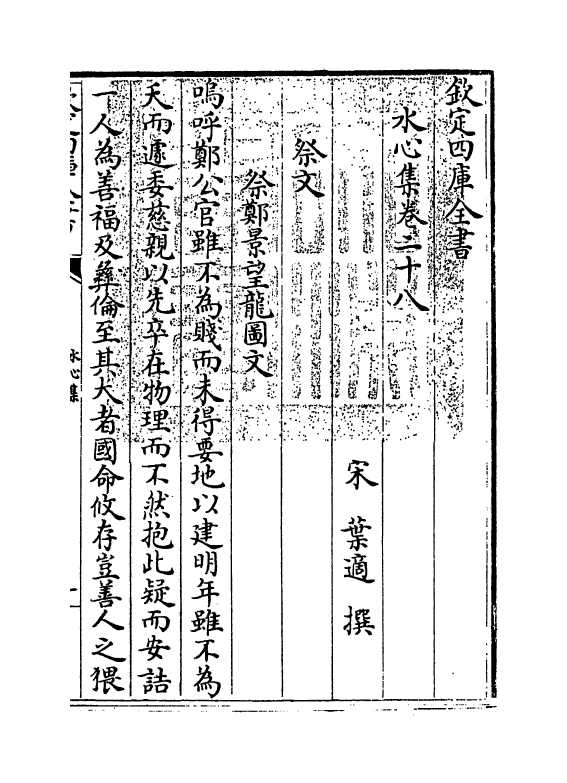 欽定四庫全書
水心集卷二十八
宋 葉適 撰
祭文
祭鄭景望龍圖文
嗚呼鄭公官雖不為賤而未得要地以建明年雖不為
夭而遽委慈親以先卒在物理而不然抱此疑而安詰
一人為善福及彝倫至其大者國命攸存豈善人之猥
水心集
一